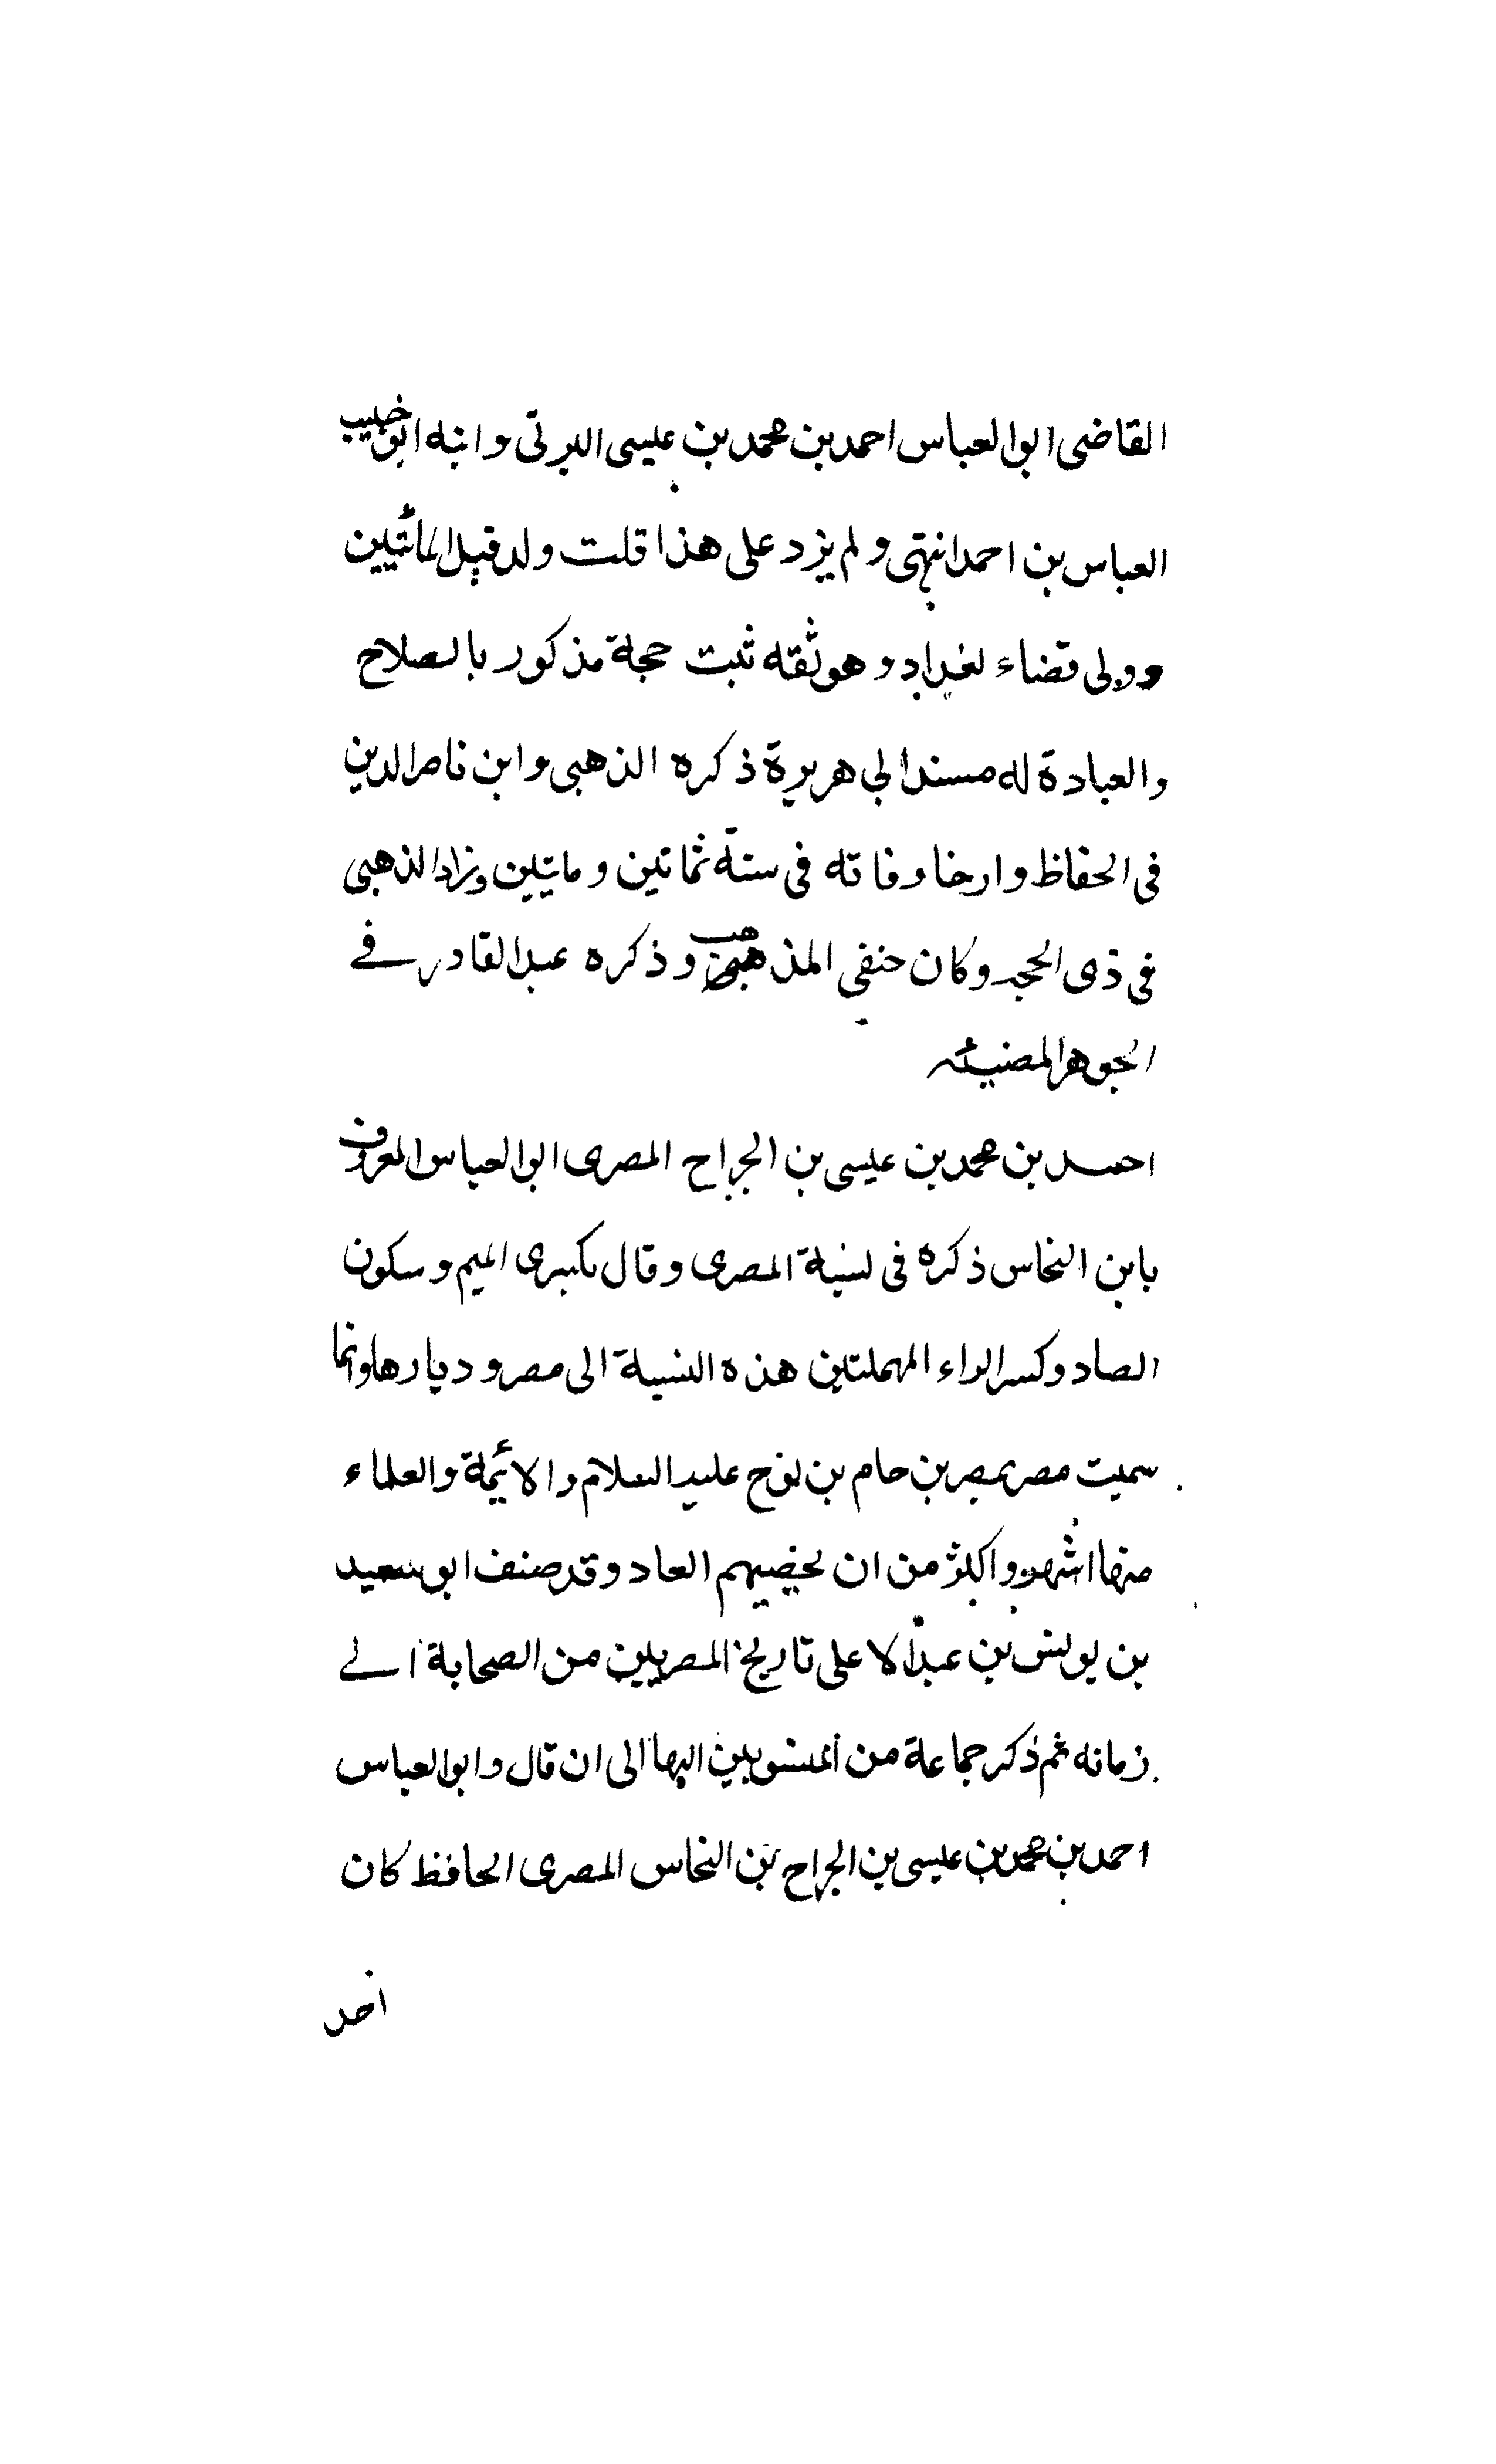 القاضى ابوالعباس احمد بن محمد بن عيسى البرتى وابنه ابوخبيب
العباس بن احمد انتهى ولم يزد على هذا قلت ولد قبل المائتين
وولى قضاء بغداد وهو ثقه ثبت حجة مذكور بالصلاح
والعبادة له مسند ابي هريرة ذكره الذهبى وابن ناصرالدين
فى الحفاظ وارخا وفاته فى سنة ثمانين وماتيين وزاد الذهبى
فى ذى الحجه وكان حنفى المذهب وذكره عبدالقادر فے
الجوهر المضيئه
احمد بن محمد بن عيسى بن الجراح المصرى ابوالعباس المعروف
بابن النحاس ذكره فى نسبة المصرى وقال بكسرى الميم وسكون
الصاد وكسر الراء المهملتين هذه النسبة الى مصر وديارها وانما
سميت مصر بمصر بن حام بن نوح عليه السلام والائمة والعلماء
منها اشهر واكثر من ان يحصيهم العاد وقد صنف ابوسعيد
بن يونس بن عبدالاعلى تاريخ المصريين من الصحابة الے
زمانه ثم ذكر جماعة من المنسوبين اليها الى ان قال وابوالعباس
احمد بن محمد بن عيسى بن الجراح بن النحاس المصرى الحافظ كان
احد